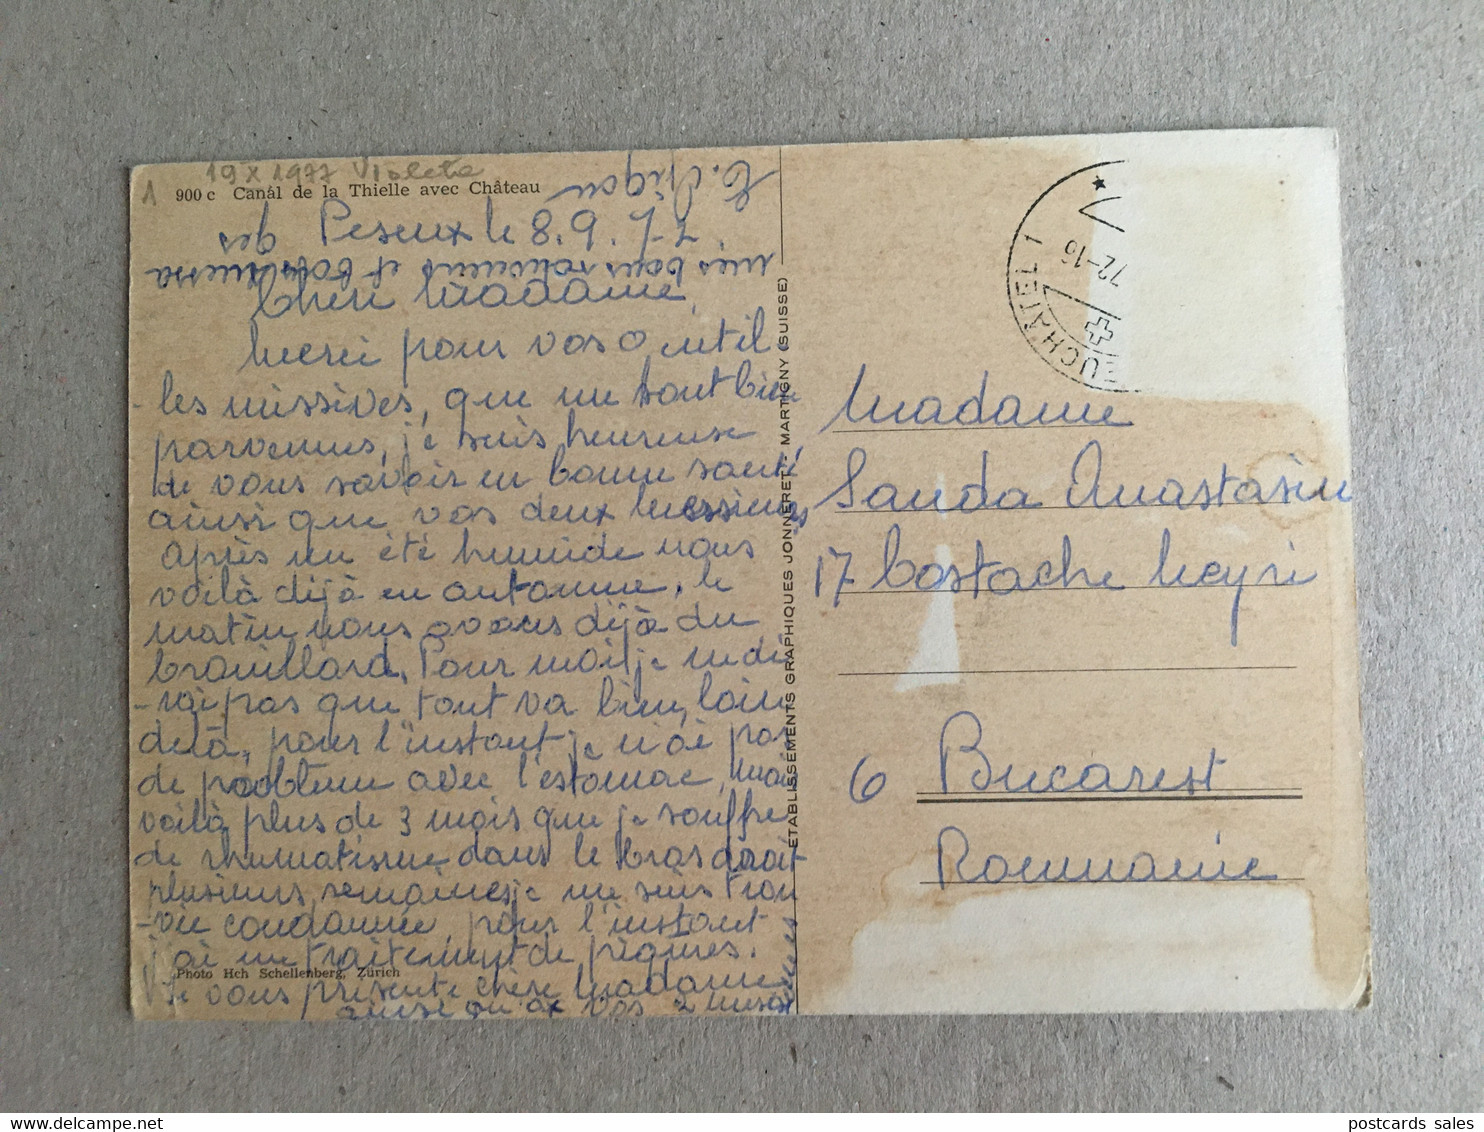 19 X 1977 Violeta
1
900 c Canâl de la Thielle avec Château
Peseux le 8.9.72
Chère Madame,
Merci pour vos 2 util
-les missives, que me sont bien
parvenues, je suis heureuse
de vous savoir en bonne santé
ainsi que vos deux Messieurs
Après un été humide nous
voilà déjà en automne, le
matin nous avons déjà du
brouillard. Pour moi je ne di
-rai pas que tout va bien, loin
de là, pour l'instant je n'ai pas
de problème avec l'estomac, mais
voilà plus de 3 mois que je souffre
de rhumatisme dans le bras droit
plusieurs semaines je me suis trou
-vée condamnée, pour l'instant
j'ai un traitement de piqures.
Je vous présente chère Madame
ainsi qu'ax vos 2 mess
mes bons souvenirs et bons messa
ges
Photo Hch Schellenberg, Zürich
ETABLISSEMENTS GRAPHIQUES JONNERET - MARTIGNY (SUISSE)
EUCHÂTEL 1
72-16
Madame
Sanda Anastasiu
17 Costache Negri
6 Bucarest
Roumanie
postcards sales